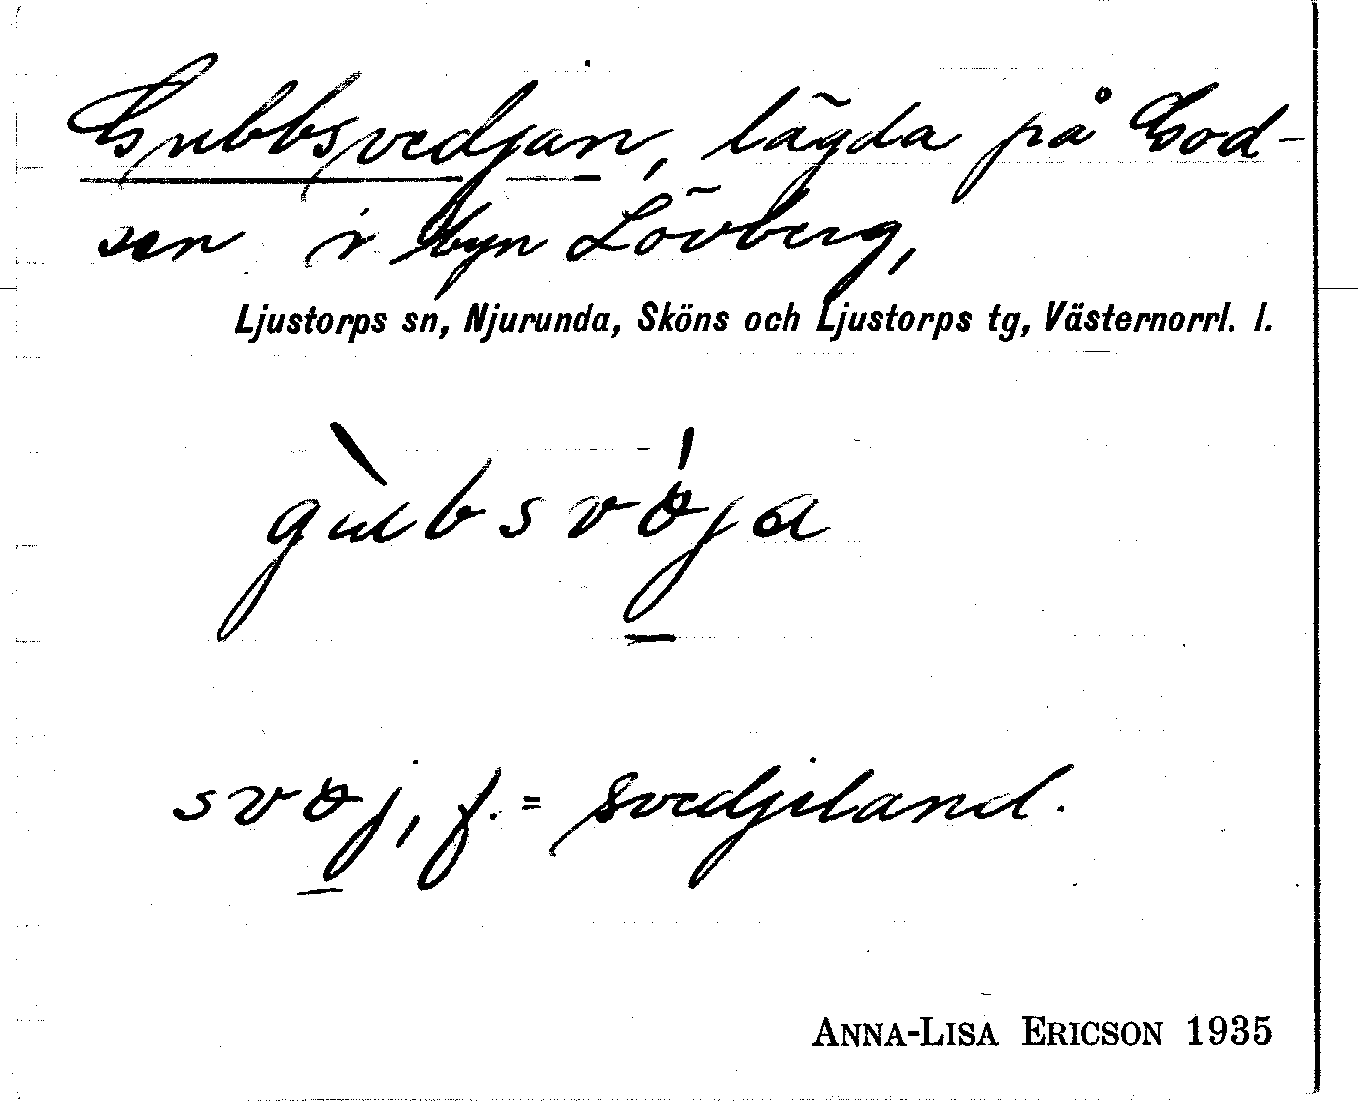 Gubbsvedjan, lägda på God-
sen i byn Lövberg,
Ljustorps sn, Njurunda, Sköns och Ljustorps tg, Västernorrl. l.
gùbsvǿja
svøj, f. = svedjeland.
ANNA-LISA ERICSON 1935